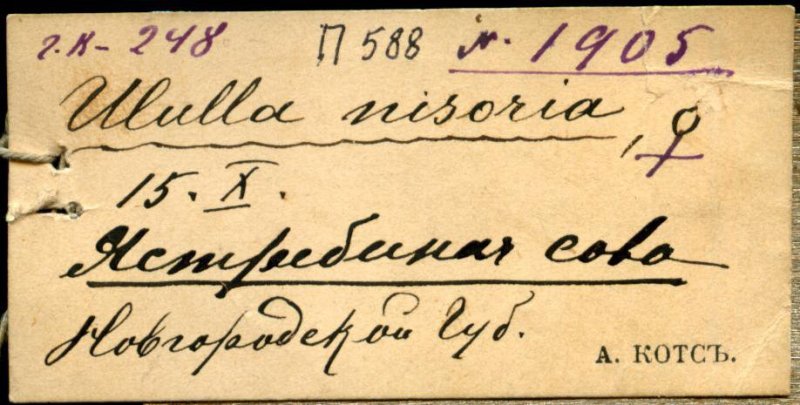 г.к-248 П 588 N. 1905
Ululla nisoria, ♀
15. X.
Ястребиная сова
Новгородской Губ.
А. КОТСЪ.